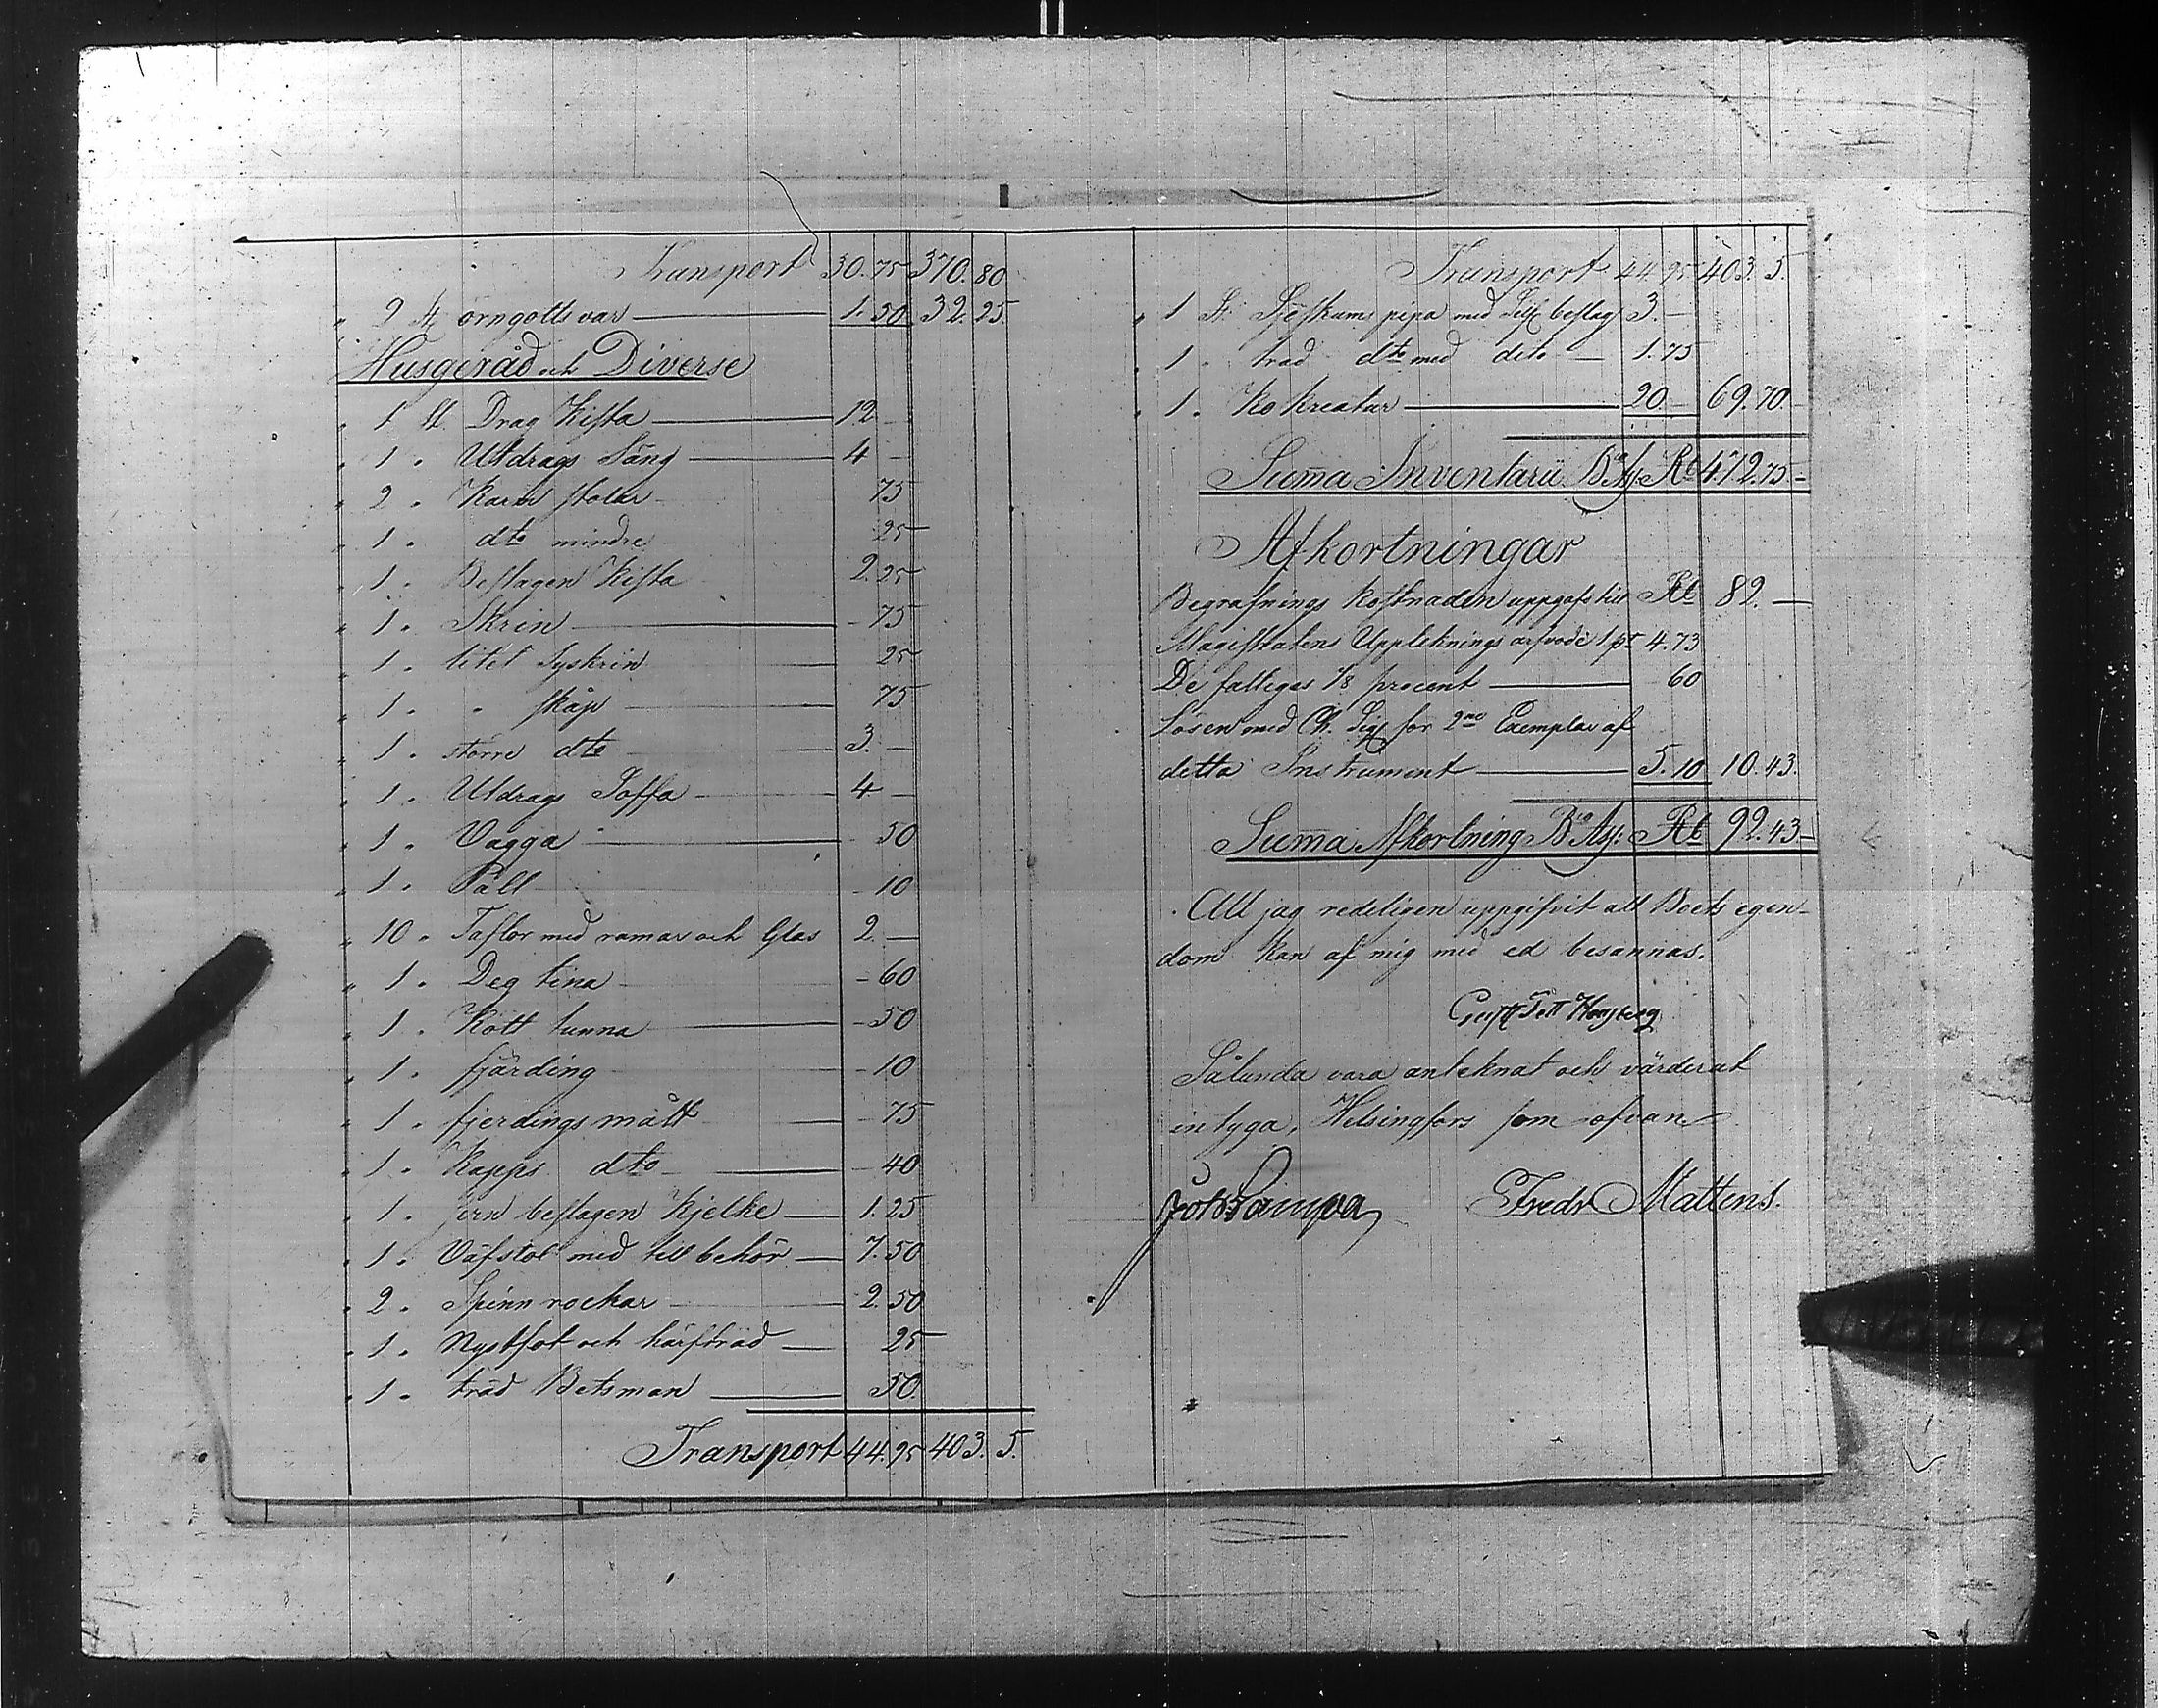 Transport 30.75 370.80
" 2 St örngotts var 1.50 32.25.
Husgeråd och Diverse
" 1 St. Drag Kista 12 -
" 1 " Utdrags Säng 4 -
" 2 " Karm stolar 75
" 1 " dto mindre 25
" 1 " Beslagen Kista 2.25
" 1 " Skrin - 75
" 1 " litet Syskrin 25
" 1 " " skåp 75
" 1 " större dto 3. -
" 1 " Utdrags Soffa 4 -
" 1 " Vagga - 50
" 1 " Pall - 10
" 10 " Taflor med ramar och Glas 2. -
" 1 " Deg tina - 60
" 1 " Kött tunna - 50
" 1 " fjärding - 10
" 1 " fjerdings mått - 75
" 1 " Kapps dto - 40
" 1 " jern beslagen Kjelke 1.25
" 1 " Väfstol med till behör 7.50
" 2 " Spinn rockar 2.50
" 1 " Nystfot och härfträd 25
" 1 " träd Betsman 50.
Transport 44.95 403. 5.
Transport 44.95 403. 5.
" 1 St. Sjöskums pipa med Silf beslag 3. -
" 1 " träd dto med dito 1.75
" 1 " Ko kreatur 20. - 69.70.
Suma Inventarii Bco Ass. Rb 472.75 -
Afkortningar
Begrafnings Kostnaden uppgafs till Rb 82. -
Magistratens Uppteknings arfvode 1 pt 4.73
De fattigas 1/8 procent 60
Lösen med Ch. Sig för 2ne Exemplar af
detta Instrument 5.10 10.43.
Suma Afkortning Bco Ass: Rb 92.43 -
Att jag redeligen uppgifvit all Boets egen-
dom kan af mig med ed besannas.
Gust
Sålunda vara anteknat och värderat
intyga, Helsingfors som ofvan
Fredr Mattens.